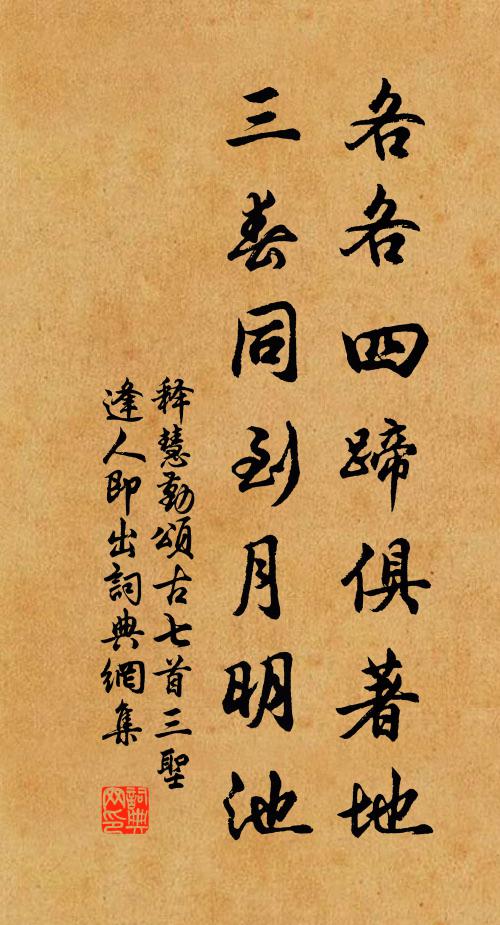 各各四蹄俱著地
三春同到月明池
释慧勤頌古七首三聖
逢人即出詞典網集
詞典網印